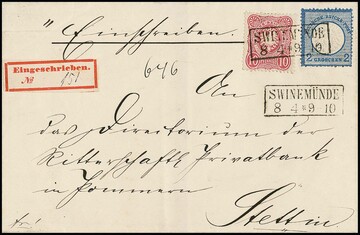 Einschreiben.
SWINEMÜNDE
8 4 * 9 10
10
2 GROSCHEN 2
Eingeschrieben.
№ 151
646
SWINEMÜNDE
8 4 * 9 10
An
das Directorium der
Ritterschaftl. Privatbank
in Pommern
Stettin